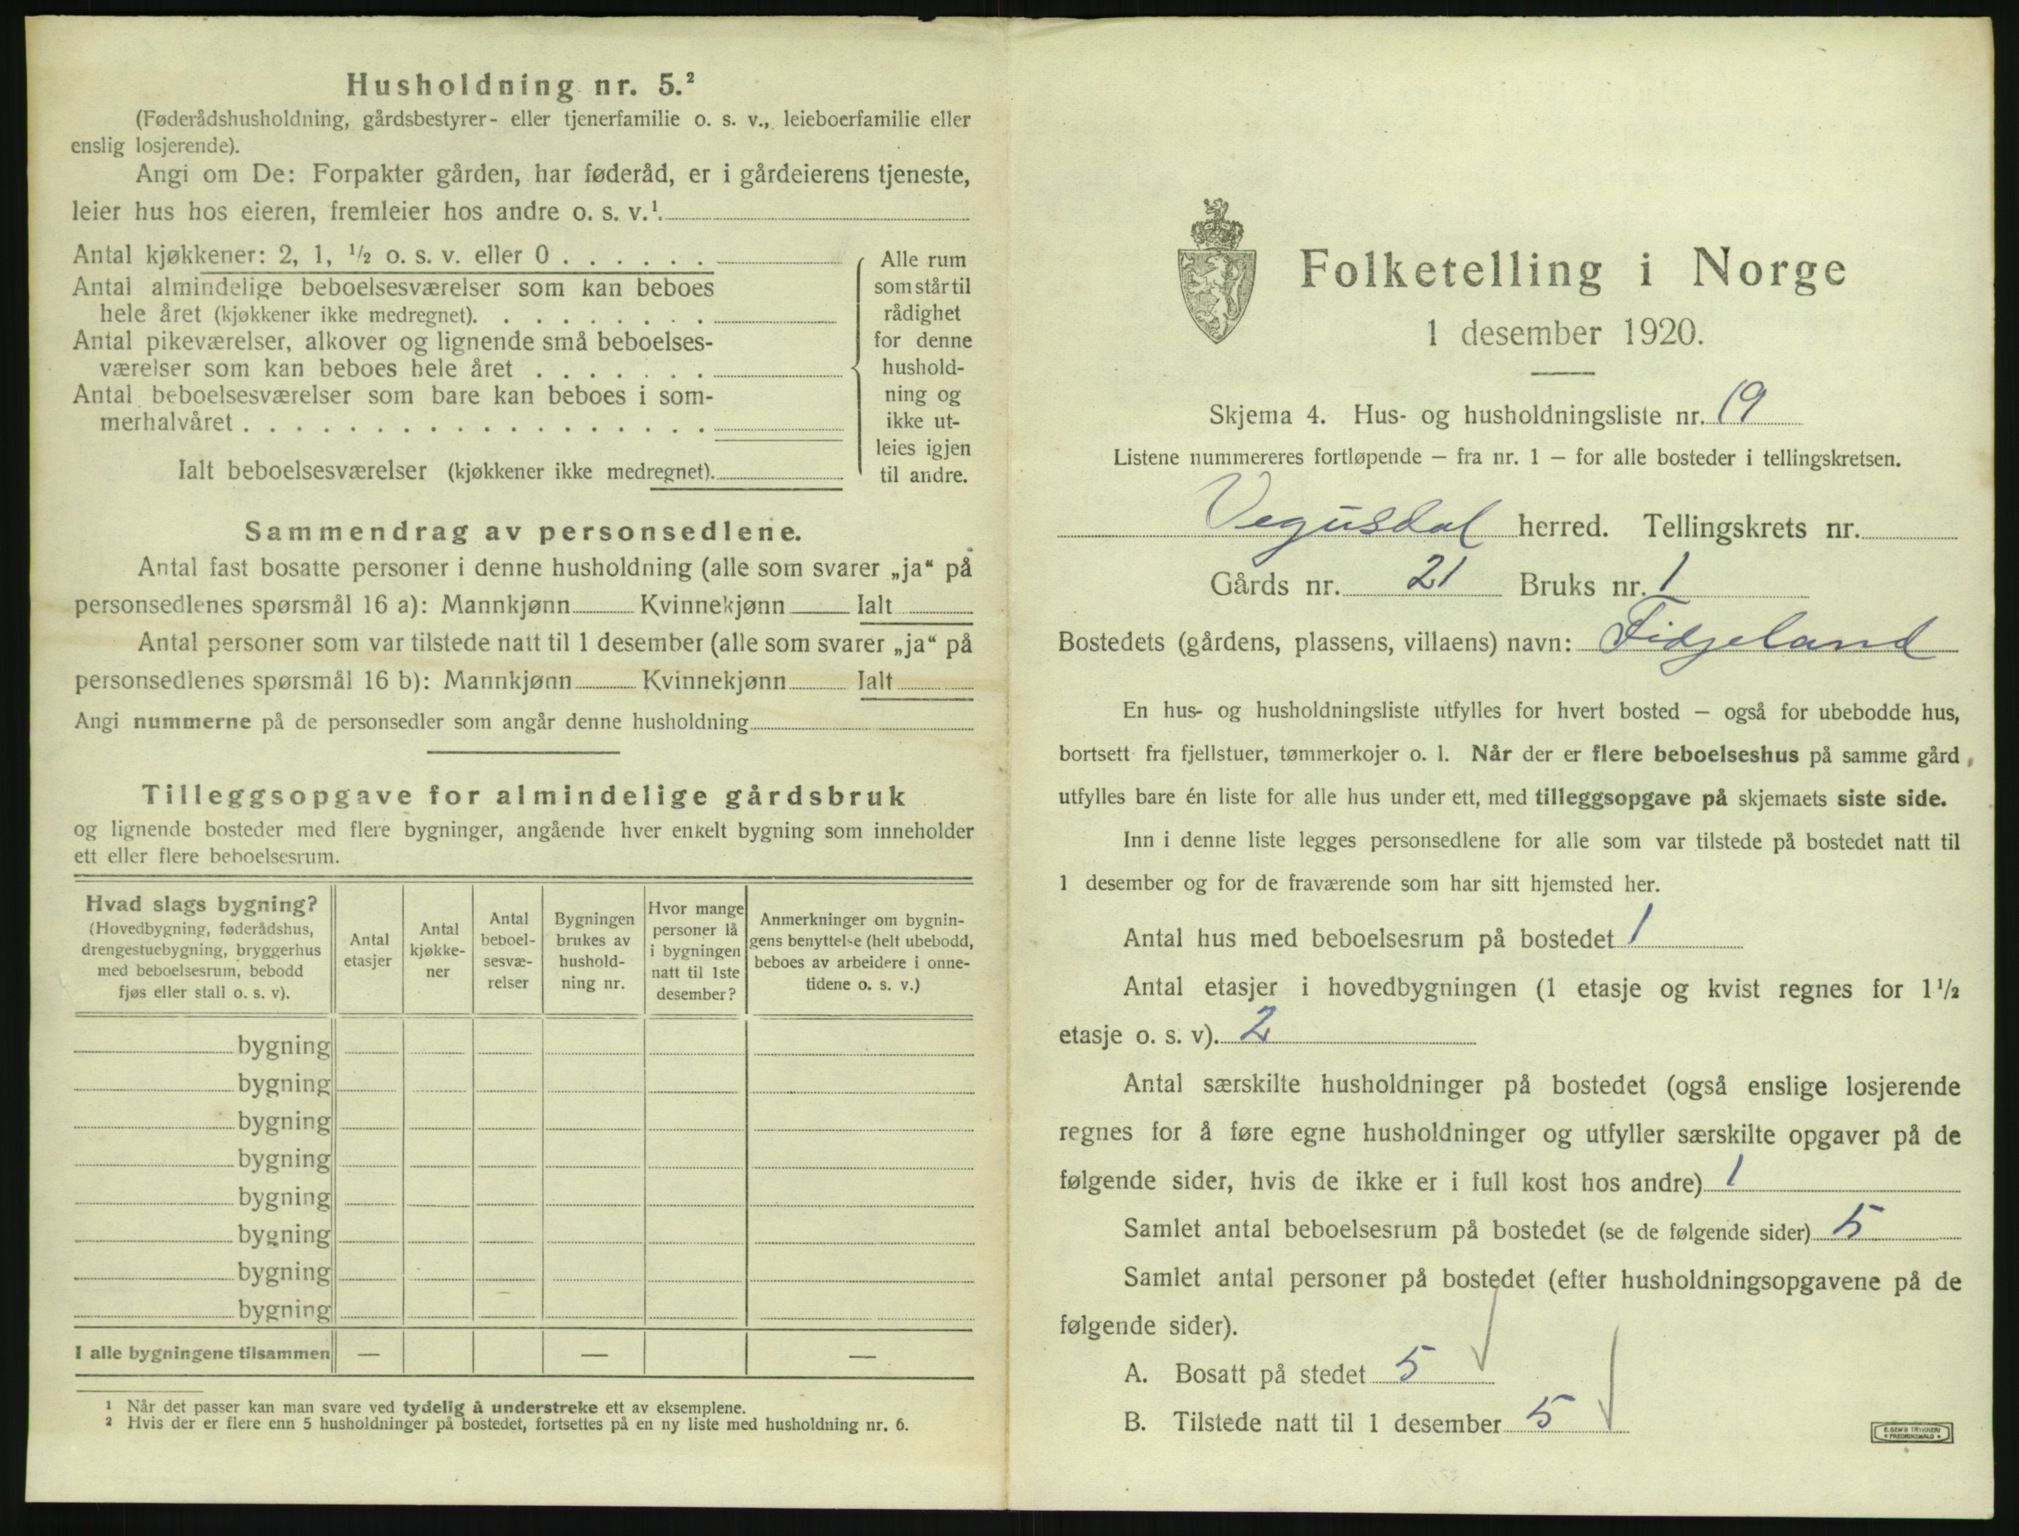 Husholdning nr. 5.²
(Føderådshusholdning, gårdsbestyrer- eller tjenerfamilie o. s. v., leieboerfamilie eller
enslig losjerende).
Angi om De: Forpakter gården, har føderåd, er i gårdeierens tjeneste,
leier hus hos eieren, fremleier hos andre o. s. v.¹.
Antal kjøkkener: 2, 1, ½ o. s. v. eller 0 . . . . . .
Antal almindelige beboelsesværelser som kan beboes
hele året (kjøkkener ikke medregnet). . . . . . . . .
Antal pikeværelser, alkover og lignende små beboelses-
værelser som kan beboes hele året . . . . . . .
Antal beboelsesværelser som bare kan beboes i som-
merhalvåret . . . . . . . . . . . . . . . . . .
Ialt beboelsesværelser (kjøkkener ikke medregnet).
Alle rum
som står til
rådighet
for denne
hushold-
ning og
ikke ut-
leies igjen
til andre.
Sammendrag av personsedlene.
Antal fast bosatte personer i denne husholdning (alle som svarer „ja“ på
personsedlenes spørsmål 16 a): Mannkjønn Kvinnekjønn Ialt
Antal personer som var tilstede natt til 1 desember (alle som svarer „ja“ på
personsedlenes spørsmål 16 b): Mannkjønn Kvinnekjønn Ialt
Angi nummerne på de personsedler som angår denne husholdning
Tilleggsopgave for almindelige gårdsbruk
og lignende bosteder med flere bygninger, angående hver enkelt bygning som inneholder
ett eller flere beboelsesrum.
Hvad slags bygning?
(Hovedbygning, føderådshus,
drengestuebygning, bryggerhus
med beboelsesrum, bebodd
fjøs eller stall o. s. v).
Antal
etasjer
Antal
kjøkke-
ner
Antal
beboel-
sesvæ-
relser
Bygningen
brukes av
hushold-
ning nr.
Hvor mange
personer lå
i bygningen
natt til 1ste
desember?
Anmerkninger om bygnin-
gens benyttelse (helt ubebodd,
beboes av arbeidere i onne-
tidene o. s. v.)
bygning
bygning
bygning
bygning
bygning
bygning
bygning
bygning
I alle bygningene tilsammen — — —
¹ Når det passer kan man svare ved tydelig å understreke ett av eksemplene.
² Hvis der er flere enn 5 husholdninger på bostedet, fortsettes på en ny liste med husholdning nr. 6.
Folketelling i Norge
1 desember 1920.
Skjema 4. Hus- og husholdningsliste nr. 19
Listene nummereres fortløpende — fra nr. 1 — for alle bosteder i tellingskretsen.
Vegusdal herred. Tellingskrets nr.
Gårds nr. 21 Bruks nr. 1
Bostedets (gårdens, plassens, villaens) navn: Fidjeland
En hus- og husholdningsliste utfylles for hvert bosted — også for ubebodde hus,
bortsett fra fjellstuer, tømmerkojer o. l. Når der er flere beboelseshus på samme gård,
utfylles bare én liste for alle hus under ett, med tilleggsopgave på skjemaets siste side.
Inn i denne liste legges personsedlene for alle som var tilstede på bostedet natt til
1 desember og for de fraværende som har sitt hjemsted her.
Antal hus med beboelsesrum på bostedet 1
Antal etasjer i hovedbygningen (1 etasje og kvist regnes for 1½
etasje o. s. v). 2
Antal særskilte husholdninger på bostedet (også enslige losjerende
regnes for å føre egne husholdninger og utfyller særskilte opgaver på de
følgende sider, hvis de ikke er i full kost hos andre) 1
Samlet antal beboelsesrum på bostedet (se de følgende sider) 5
Samlet antal personer på bostedet (efter husholdningsopgavene på de
følgende sider).
A. Bosatt på stedet 5
B. Tilstede natt til 1 desember 5